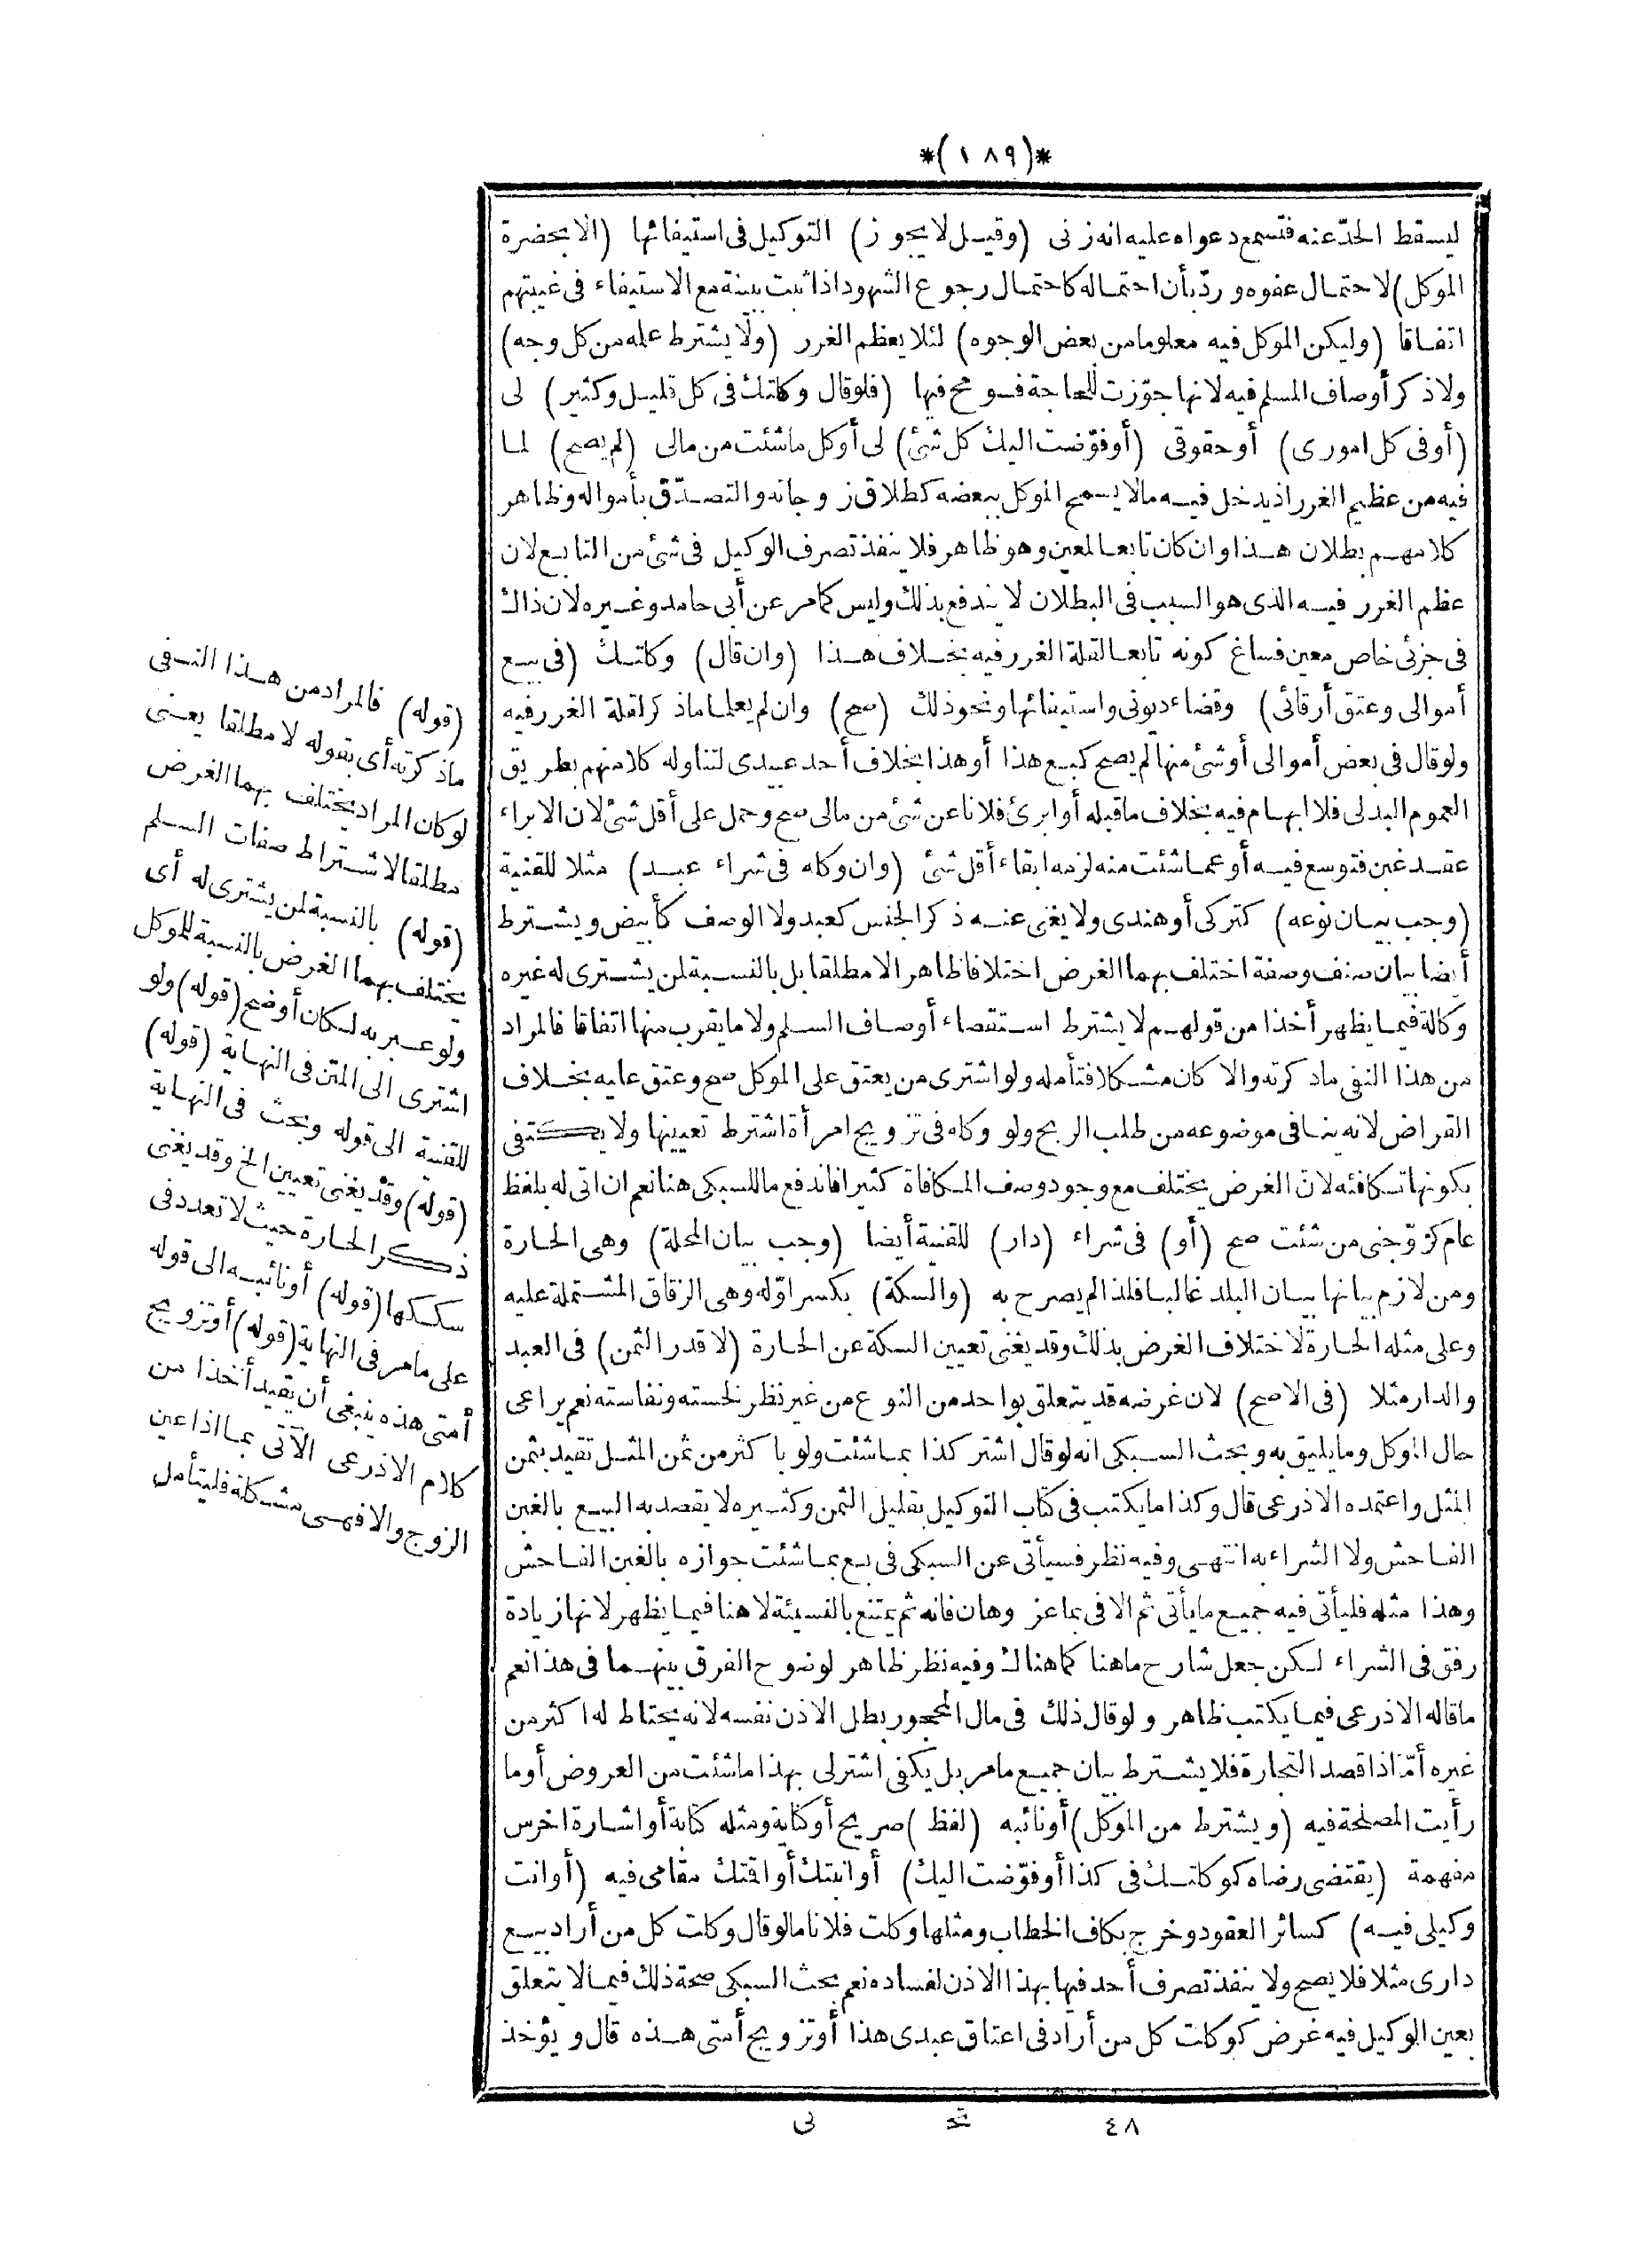 *(١٨٩)*
ليسقط الحدّ عنه فتسمع دعواه عليه انه زنى (وقيل لا يجوز) التوكيل فى استيفائها (الا بحضرة
الموكل) لاحتمال عفوه وردّ بأن احتماله كاحتمال رجوع الشهود اذا ثبت ببينة مع الاستيفاء فى غيبتهم
اتفاقا (وليكن الموكل فيه معلوما من بعض الوجوه) لئلا يعظم الغرر (ولا يشترط علمه من كل وجه)
ولا ذكر أوصاف المسلم فيه لانها جوّزت للحاجة فسومح فيها (فلو قال وكلتك فى كل قليل وكثير) لى
(أو فى كل امورى) أو حقوقى (أو فوّضت اليك كل شئ) لى أو كل ما شئت من مالى (لم يصح) لما
فيه من عظيم الغرر اذ يدخل فيه ما لا يسمح الموكل ببعضه كطلاق زوجاته والتصدّق بأمواله وظاهر
كلامهم بطلان هذا وان كان تابعا لمعين وهو ظاهر فلا ينفذ تصرف الوكيل فى شئ من التابع لان
عظم الغرر فيه الذى هو السبب فى البطلان لا يندفع بذلك وليس كما مر عن أبى حامد وغيره لان ذاك
فى جزئى خاص معين فساغ كونه تابعا لقلة الغرر فيه بخلاف هذا (وان قال) وكلتك (فى بيع
أموالى وعتق أرقائى) وقضاء ديونى واستيفائها ونحو ذلك (صح) وان لم يعلما ما ذكر لقلة الغرر فيه
ولو قال فى بعض أموالى أو شئ منها لم يصح كبع هذا أو هذا بخلاف أحد عبيدى لتناوله كلا منهم بطريق
العموم البدلى فلا ابهام فيه بخلاف ما قبله أو ابرئ فلانا عن شئ من مالى صح وحمل على أقل شئ لان الابراء
عقد غبن فتوسع فيه أو عما شئت منه لزمه ابقاء أقل شئ (وان وكله فى شراء عبد) مثلا للقنية
(وجب بيان نوعه) كتركى أو هندى ولا يغنى عنه ذكر الجنس كعبد ولا الوصف كأبيض ويشترط
أيضا بيان صنف وصفة اختلف بهما الغرض اختلافا ظاهرا لا مطلقا بل بالنسبة لمن يشترى له غيره
وكالة فيما يظهر أخذا من قولهم لا يشترط استقصاء أوصاف السلم ولا ما يقرب منها اتفاقا فالمراد
من هذا النفى ما ذكرته والا كان مشكلا فتأمله ولو اشترى من يعتق على الموكل صح وعتق عليه بخلاف
القراض لانه ينافى موضوعه من طلب الربح ولو وكله فى تزويج امرأة اشترط تعيينها ولا يكتفى
بكونها تكافئه لان الغرض يختلف مع وجود وصف المكافاة كثيرا فاندفع ما للسبكى هنا نعم ان اتى له بلفظ
عام كزوّجنى من شئت صح (أو) فى شراء (دار) للقنية أيضا (وجب بيان المحلة) وهى الحارة
ومن لازم بيانها بيان البلد غالبا فلذا لم يصرح به (والسكة) بكسر اوّله وهى الزقاق المشتملة عليه
وعلى مثله الحارة لاختلاف الغرض بذلك وقد يغنى تعيين السكة عن الحارة (لا قدر الثمن) فى العبد
والدار مثلا (فى الاصح) لان غرضه قد يتعلق بواحد من النوع من غير نظر لخسته ونفاسته نعم يراعى
حال الموكل وما يليق به وبحث السبكى انه لو قال اشتر كذا بما شئت ولو باكثر من ثمن المثل تقيد بثمن
المثل واعتمده الاذرعى قال وكذا ما يكتب فى كتاب التوكيل بقليل الثمن وكثيره لا يقصد به البيع بالغبن
الفاحش ولا الشراء به انتهى وفيه نظر فسيأتى عن السبكى فى بع بما شئت جوازه بالغبن الفاحش
وهذا مثله فليأتى فيه جميع ما يأتى ثم الا فى بما عز وهان فانه ثم يمتنع بالنسيئة لا هنا فيما يظهر لانها زيادة
رفق فى الشراء لكن جعل شارح ما هنا كما هناك وفيه نظر ظاهر لوضوح الفرق بينهما فى هذا نعم
ما قاله الاذرعى فيما يكتب ظاهر ولو قال ذلك فى مال المحجور بطل الاذن نفسه لانه يحتاط له اكثر من
غيره أمّا اذا قصد التجارة فلا يشترط بيان جميع ما مر بل يكفى اشتر لى بهذا ما شئت من العروض أو ما
رأيت المصلحة فيه (ويشترط من الموكل) أو نائبه (لفظ) صريح أو كناية ومثله كتابة أو اشارة اخرس
مفهمة (يقتضى رضاه كوكلتك فى كذا أو فوّضت اليك) أو انبتك أو اقتك مقامى فيه (أو انت
وكيلى فيه) كسائر العقود وخرج بكاف الخطاب ومثلها وكلت فلانا ما لو قال وكلت كل من أراد بيع
دارى مثلا فلا يصح ولا ينفذ تصرف أحد فيها بهذا الاذن لفساده نعم بحث السبكى صحة ذلك فيما لا يتعلق
بعين الوكيل فيه غرض كوكلت كل من أراد فى اعتاق عبدى هذا أو تزويج أمتى هذه قال ويؤخذ
(قوله) فالمراد من هذا النفى
ما ذكرته أى بقوله لا مطلقا يعنى
لو كان المراد يختلف بهما الغرض
مطلقا لا اشتراط صفات السلم
(قوله) بالنسبة لمن يشترى له أى
يختلف بهما الغرض بالنسبة للموكل
ولو عبر به لكان أوضح (قوله) ولو
اشترى الى المتن فى النهاية (قوله)
للقنية الى قوله وبحث فى النهاية
(قوله) وقد يغنى تعيين الخ وقد يغنى
ذكر الحارة حيث لا تعدد فى
سككها (قوله) أو نائبه الى قوله
على ما مر فى النهاية (قوله) أو تزويج
أمتى هذه ينبغى أن يقيد أخذا من
كلام الاذرعى الآتى بما اذا عين
الزوج والا فهى مشكلة فليتأمل
٤٨ تحـ نى